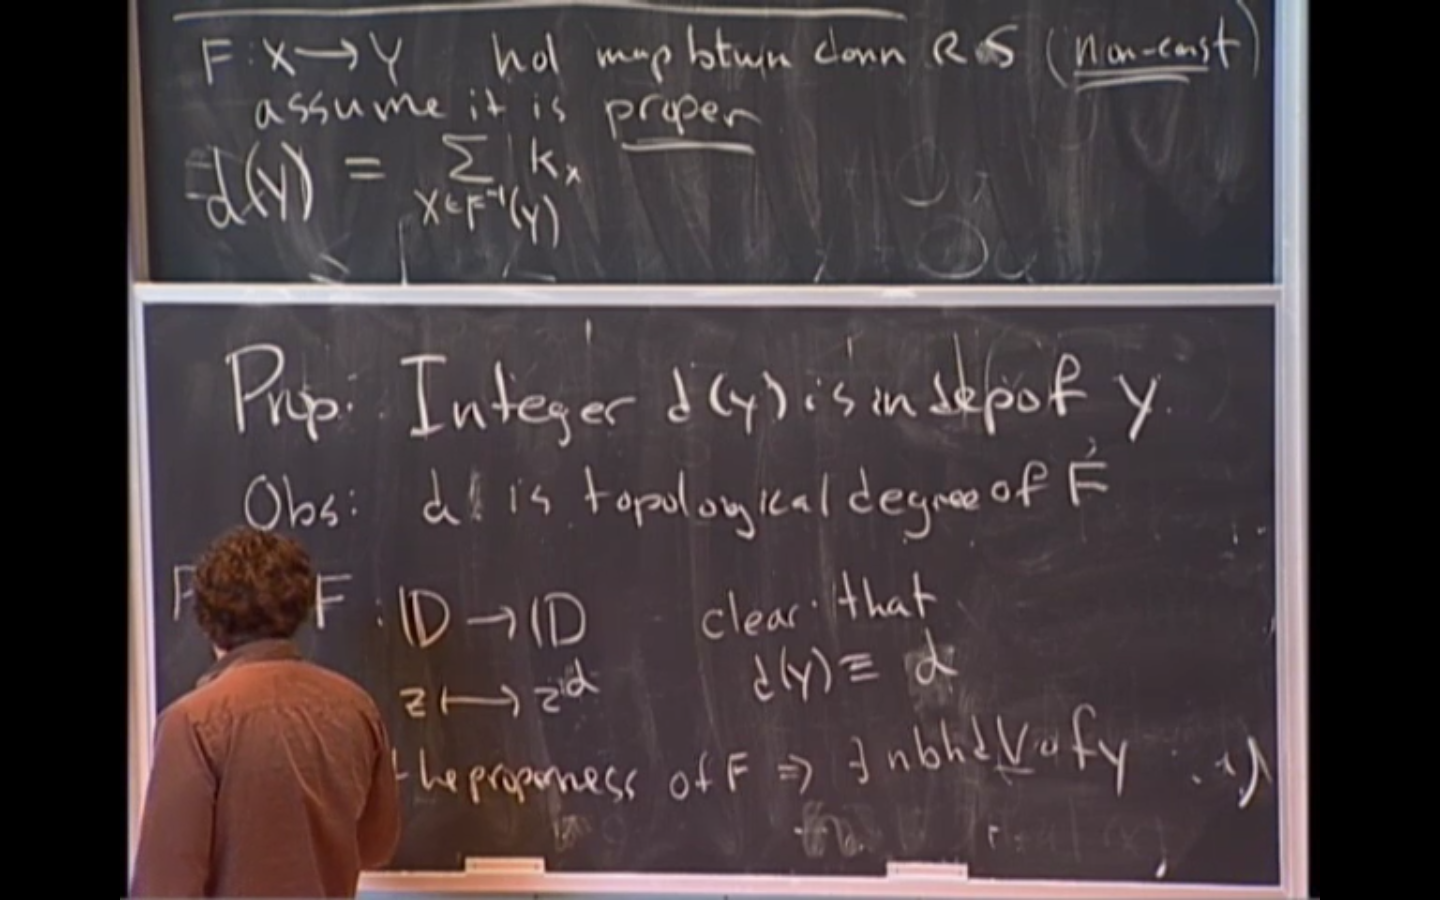 F: X → Y hol map btwn conn R S (non-const)
assume it is proper
d(y) = Σ kₓ
x∈F⁻¹(y)
Prop: Integer d(y) is indep of y.
Obs: d is topological degree of F
F : ID → ID clear that
z ↦ z^d d(y) ≡ d
the properness of F ⇒ ∃ nbhd V of y